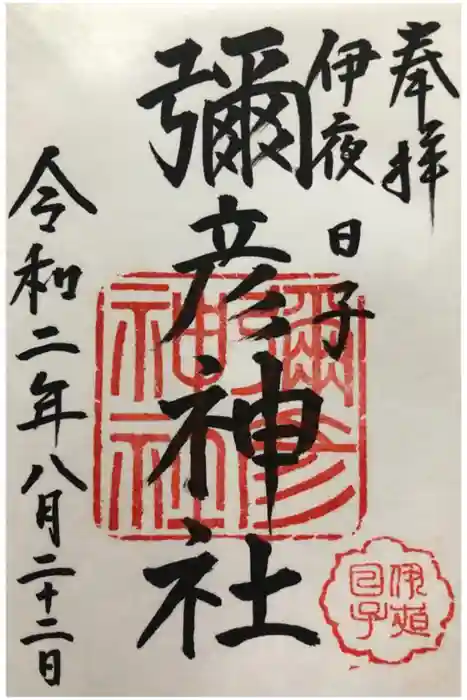 奉拝
伊夜日子
彌彦神社
令和二年八月二十二日
彌彦神社